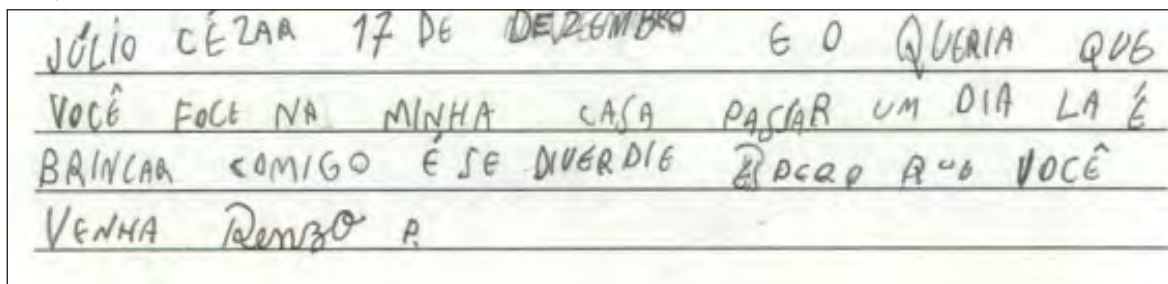 JÚLIO CÉZAR 17 DE DEZEMBRO E O QUERIA QUE
VOCÊ FOCE NA MINHA CASA PASSAR UM DIA LA É
BRINCAR COMIGO É SE DIVERDIE QUE VOCÊ
VENHA Renzo P.